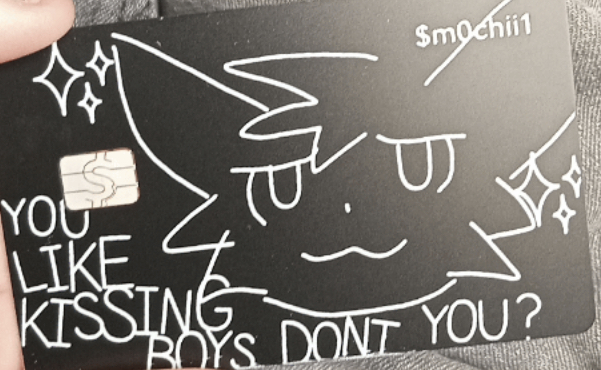 $m0chii1
YOU
LIKE
KISSING
BOYS DONT YOU?